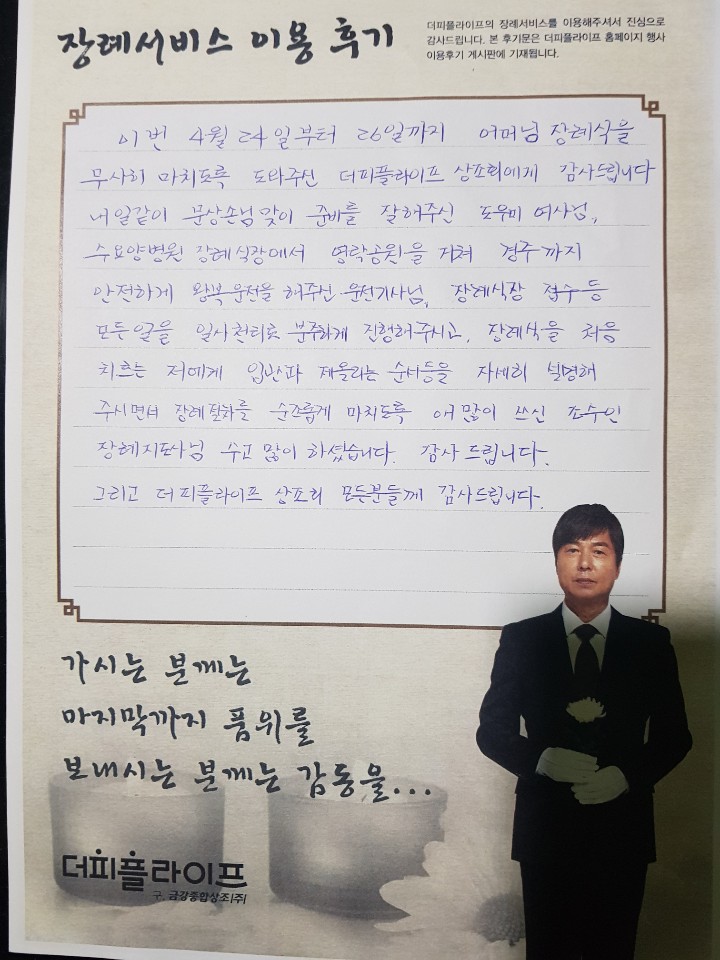 장례서비스 이용 후기
더피플라이프의 장례서비스를 이용해주셔서 진심으로
감사드립니다. 본 후기문은 더피플라이프 홈페이지 행사
이용후기 게시판에 기재됩니다.
이번 4월 24일부터 26일까지 어머님 장례식을
무사히 마치도록 도와주신 더피플라이프 상조회에게 감사드립니다
내일같이 문상손님맞이 준비를 잘해주신 도우미 여사님,
수요양병원 장례식장에서 영락공원을 거쳐 경주까지
안전하게 왕복운전을 해주신 운전기사님, 장례식장 접수등
모든일을 일사천리로 분주하게 진행해주시고, 장례식을 처음
치르는 저에게 입관과 제올리는 순서등을 자세히 설명해
주시면서 장례절차를 순조롭게 마치도록 애많이 쓰신 조수인
장례지도사님 수고 많이 하셨습니다. 감사드립니다.
그리고 더피플라이프 상조회 모든분들께 감사드립니다.
가시는 분께는
마지막까지 품위를
보내시는 분께는 감동을...
더피플라이프
구. 금강종합상조(주)